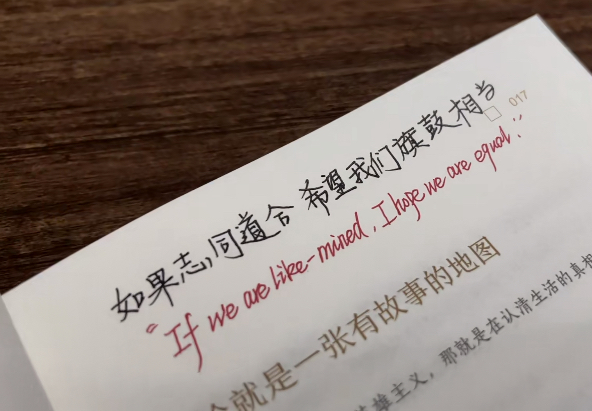 017
如果志同道合 希望我们旗鼓相当
"If we are like-mined, I hope we are equal."
就是一张有故事的地图
雄主义，那就是在认清生活的真相